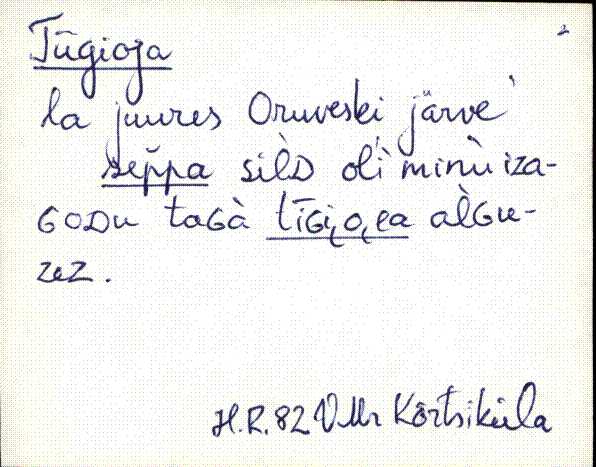 2
Tūgioja
la juures Oruveski järve
sep̆pa silᴅ̀ oli minù iza-
ɢoᴅu taɢà tīɢi̮o̮ea alɢ̀u-
zez.
H.R. 82 VMr Kõrtsiküla